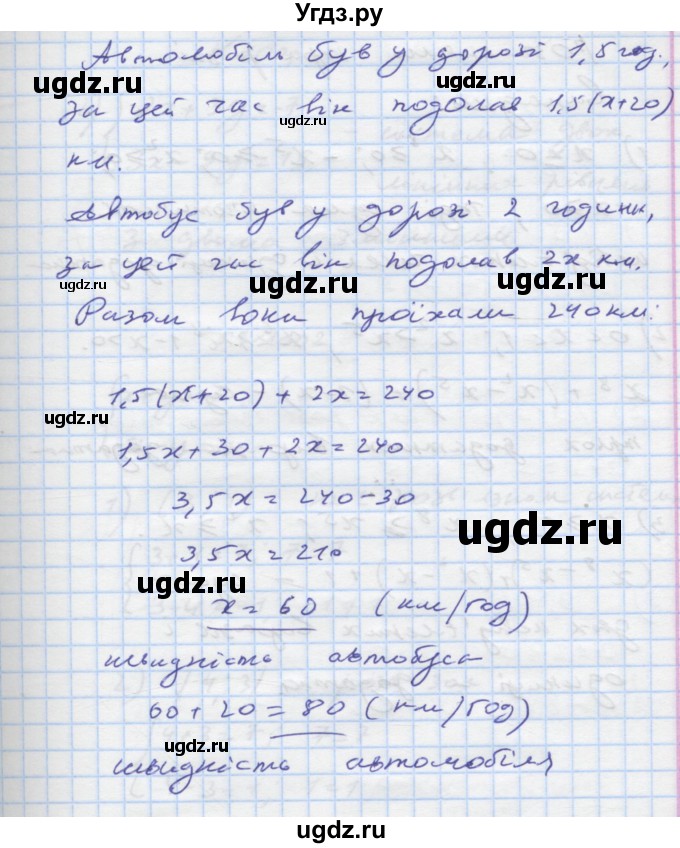 Угдз.ру
Автомобіль був у дорозі 1,5 год.,
за цей час він подолав 1,5(x+20)
км.
Автобус був у дорозі 2 години,
за цей час він подолав 2x км.
Разом вони проїхали 240 км:
1,5(x+20) + 2x = 240
1,5x + 30 + 2x = 240
3,5x = 240 - 30
3,5x = 210
x = 60 (км/год)
швидкість автобуса
60 + 20 = 80 (км/год)
швидкість автомобіля
ugdz.ru
ugdz.ru
ugdz.ru
ugdz.ru
ugdz.ru
ugdz.ru
ugdz.ru
ugdz.ru
ugdz.ru
ugdz.ru
ugdz.ru
ugdz.ru